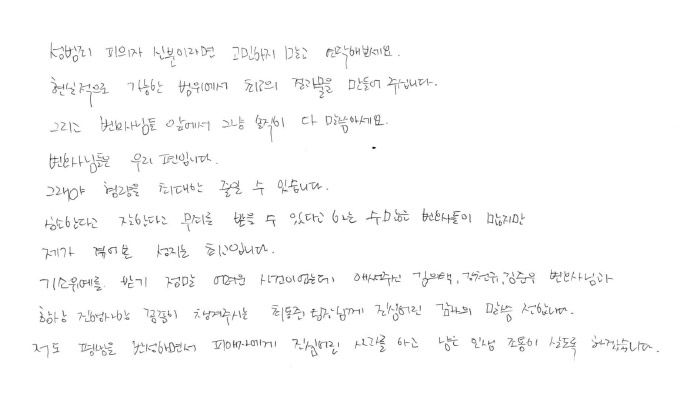 성범죄 피의자 신분이라면 고민하지 마시고 연락해보세요.
현실적으로 가능한 범위에서 최고의 결과물을 만들어 주십니다.
그리고 변호사님들 앞에서 그냥 솔직히 다 말씀하세요.
변호사님들은 우리 편입니다.
그래야 형량을 최대한 줄일 수 있습니다.
상소한다고 전화한다고 무죄를 받을 수 있다고 하는 수많은 변호사들이 많지만
제가 겪어본 성지는 최고입니다.
기소유예를 받기 정말 어려운 사건이었는데 애써주신 김의택, 김천규, 김준우 변호사님과
항상 진행사항 꼼꼼히 챙겨주시는 최동준 팀장님께 진심어린 감사의 말씀 전합니다.
저도 평생을 반성하면서 피해자에게 진심어린 사과를 하고 남은 인생 조용히 살도록 하겠습니다.